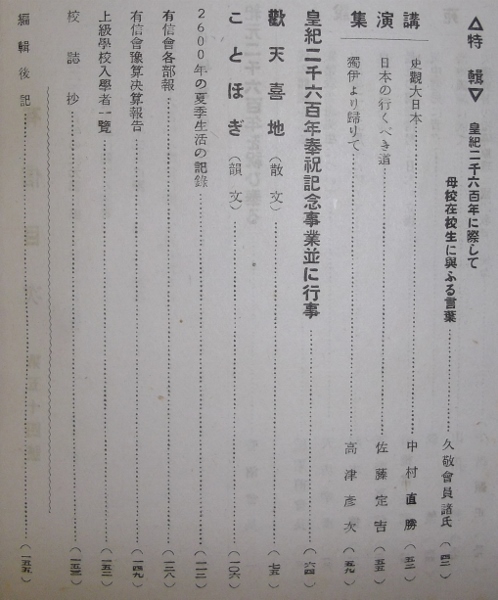 △特輯▽ 皇紀二千六百年に際して
母校在校生に與ふる言葉 久敬會員諸氏 (四二)
講演集
史觀大日本 中村直勝 (五二)
日本の行くべき道 佐藤定吉 (五五)
獨伊より歸りて 高津彦次 (五九)
皇紀二千六百年奉祝記念事業並に行事 (六四)
歡天喜地 (散文) (七五)
ことほぎ (韻文) (一〇六)
2600年の夏季生活の記錄 (一一二)
有信會各部報 (一二八)
有信會豫算決算報告 (一四九)
上級學校入學者一覽 (一五二)
校誌抄 (一五三)
編輯後記 (一五五)